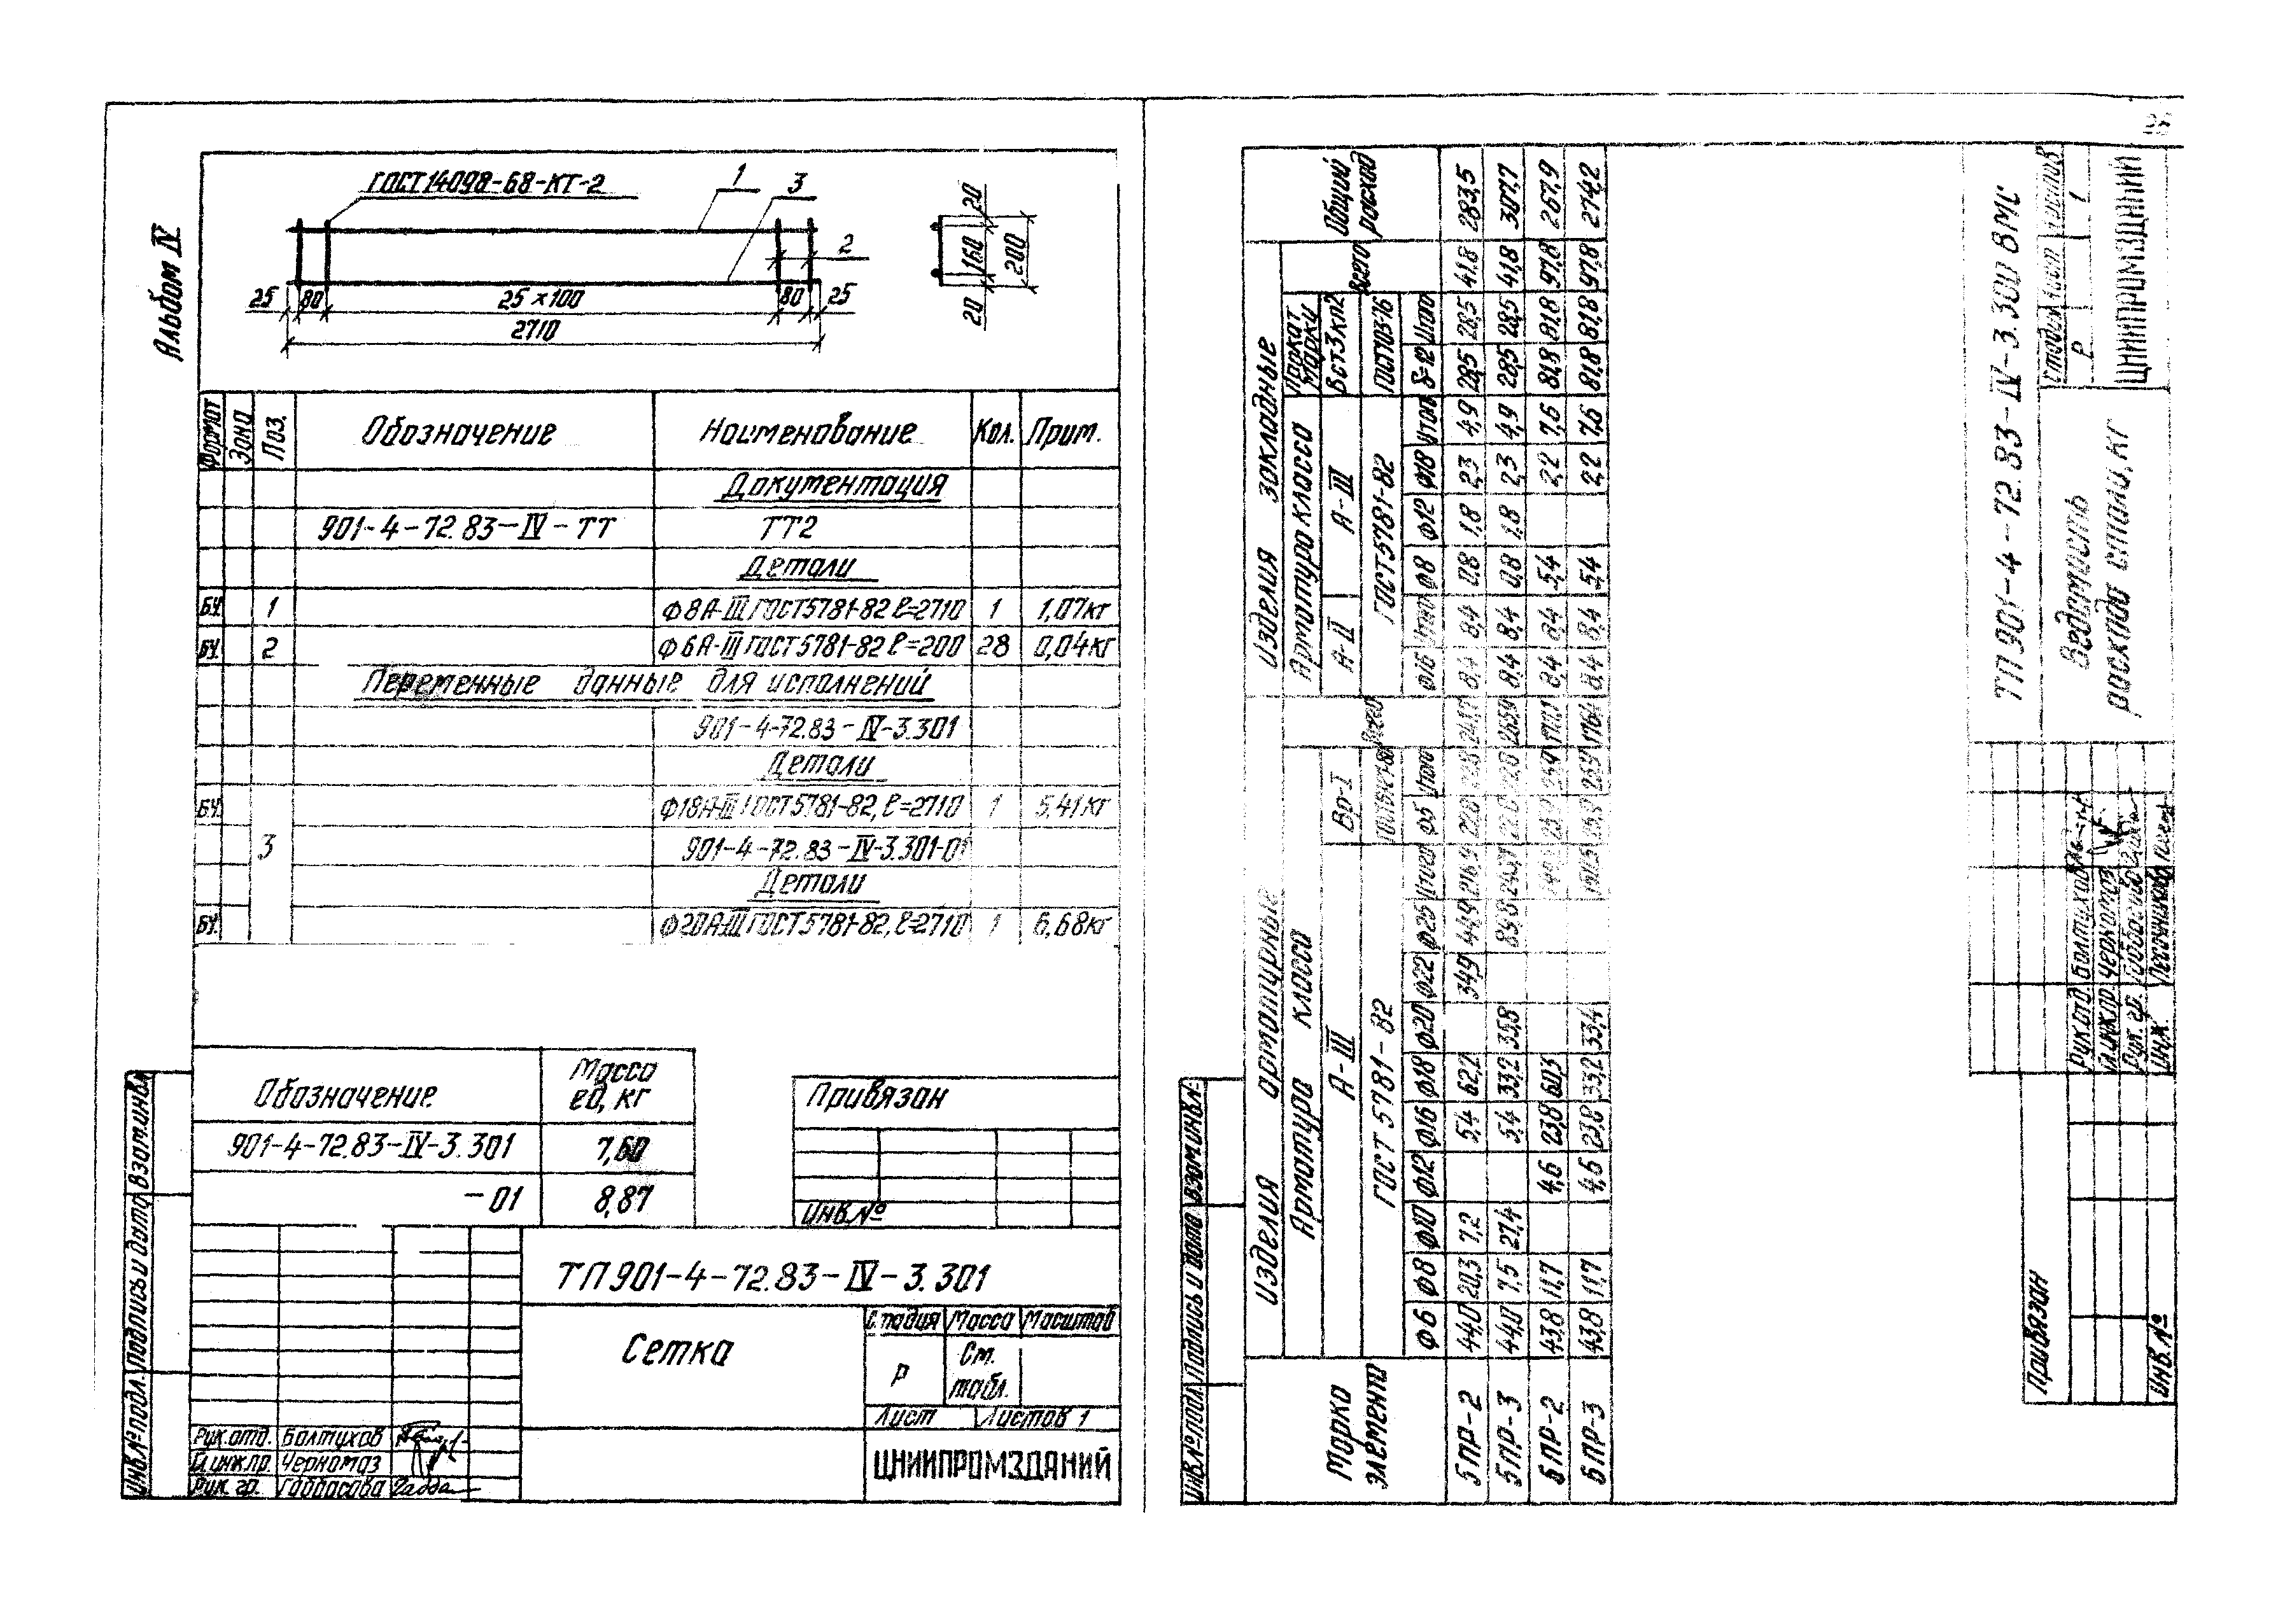 Альбом IV
ГОСТ 14098-68-КТ-2
1
3
2
25
80
25×100
80
25
2710
20
160
200
20
Формат
Зона
Поз.
Обозначение
Наименование
Кол.
Прим.
Документация
901-4-72.83-IV-ТТ
ТТ2
Детали
БЧ. 1 Ф8А-III ГОСТ 5781-82 ℓ=2710 1 1,07кг
БЧ. 2 Ф6А-III ГОСТ 5781-82 ℓ=200 28 0,04кг
Переменные данные для исполнений
901-4-72.83-IV-3.301
Детали
БЧ. Ф18А-III ГОСТ 5781-82, ℓ=2710 1 5,41кг
3
901-4-72.83-IV-3.301-01
Детали
БЧ. Ф20А-III ГОСТ 5781-82, ℓ=2710 1 6,68кг
Обозначение
Масса
ед, кг
901-4-72.83-IV-3.301 7,60
-01 8,87
Привязан
Инв.№
ТП 901-4-72.83-IV-3.301
Сетка
Стадия Масса Масштаб
Р
См.
табл.
Лист
Листов 1
ЦНИИПРОМЗДАНИЙ
Рук.отд. Болтухов
Гл.инж.пр. Черномаз
Рук. гр. Габбасова
Инв.№подл. Подпись и дата Взам.инв.№
Марка
элемента
Изделия арматурные
Арматура класса
А-III
ГОСТ 5781-82
Ф6 Ф8 Ф10 Ф12 Ф16 Ф18 Ф20 Ф22 Ф25 Итого
Вр-I
Ф5 Итого
Всего
Изделия закладные
Арматура класса
А-II
А-III
ГОСТ 5781-82
Ф16 Итого Ф8 Ф12 Ф18 Итого
Прокат
марки
Вст3кп2
ГОСТ 103-76
δ=12 Итого
Всего
Общий
расход
5ПР-2 44,0 20,3 7,2 5,4 62,2 34,9 44,9 216,9 22,8 241,7 8,4 8,4 0,8 1,8 2,3 4,9 28,5 28,5 41,8 283,5
5ПР-3 44,0 7,5 27,4 5,4 33,2 35,8 89,8 243,1 265,9 8,4 8,4 0,8 1,8 2,3 4,9 28,5 28,5 41,8 307,7
6ПР-2 43,8 11,7 4,6 23,8 60,3 25,9 8,4 8,4 5,4 2,2 7,6 81,8 81,8 97,8 267,9
6ПР-3 43,8 11,7 4,6 23,8 33,2 33,4 150,5 25,9 176,4 8,4 8,4 5,4 2,2 7,6 81,8 81,8 97,8 274,2
Инв.№подл. Подпись и дата Взам.инв.№
ТП 901-4-72.83-IV-3.300 ВМС
Ведомость
расхода стали, кг
Стадия Лист Листов
Р 1
ЦНИИПРОМЗДАНИЙ
Рук.отд. Болтухов
Гл.инж.пр. Черномаз
Рук. гр. Габбасова
Инж. Песочникова
Привязан
Инв.№